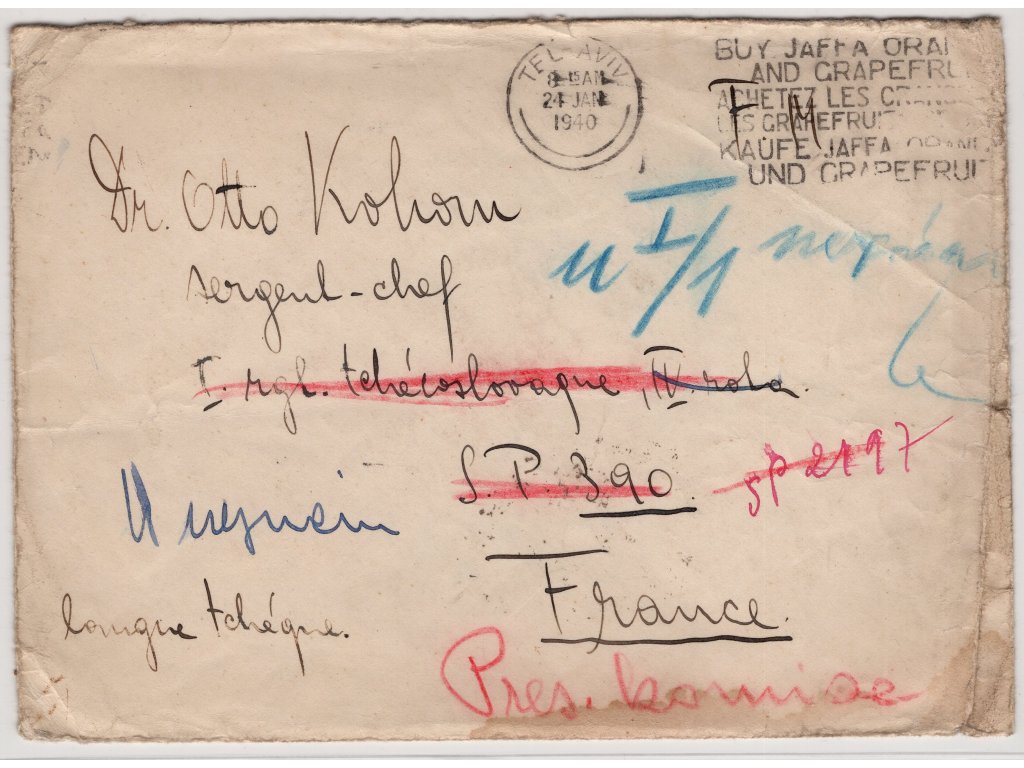 TEL-AVIV
8 15 AM
24 JAN
1940
BUY JAFFA ORAN
AND GRAPEFRU
ACHETEZ LES ORANG
LES GRAPEFRUIT
KAUFE JAFFA ORANG
UND GRAPEFRUIT
F M
Dr. Otto Kohorn
sergent-chef
u I/1
I. rgt. tchécoslovaque, IV. rota.
S. P. 390.
SP 2197
France.
langue tchéque.
Pres. komise